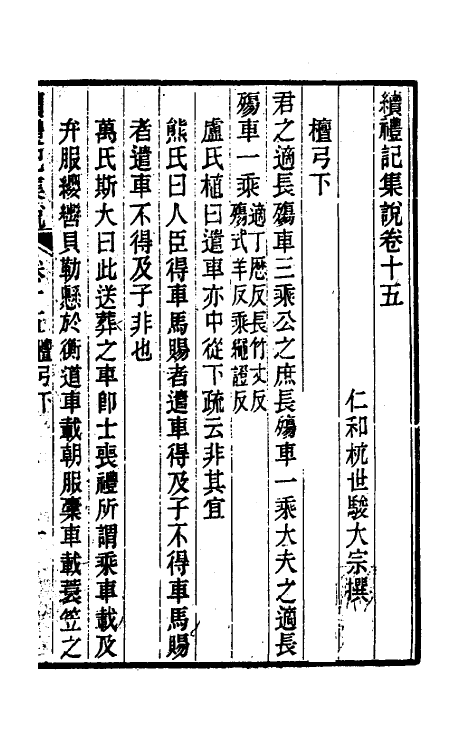 續禮記集說卷十五
仁和杭世駿大宗撰
檀弓下
君之適長殤車三乘公之庶長殤車一乘大夫之適長
殤車一乘適丁歷反長竹丈反殤式羊反乘繩證反
盧氏植曰遣車亦中從下疏云非其宜
熊氏曰人臣得車馬賜者遣車得及子不得車馬賜
者遣車不得及子非也
萬氏斯大曰此送葬之車卽士喪禮所謂乘車載及
弁服纓轡貝勒懸於衡道車載朝服槀車載蓑笠之
檀弓下